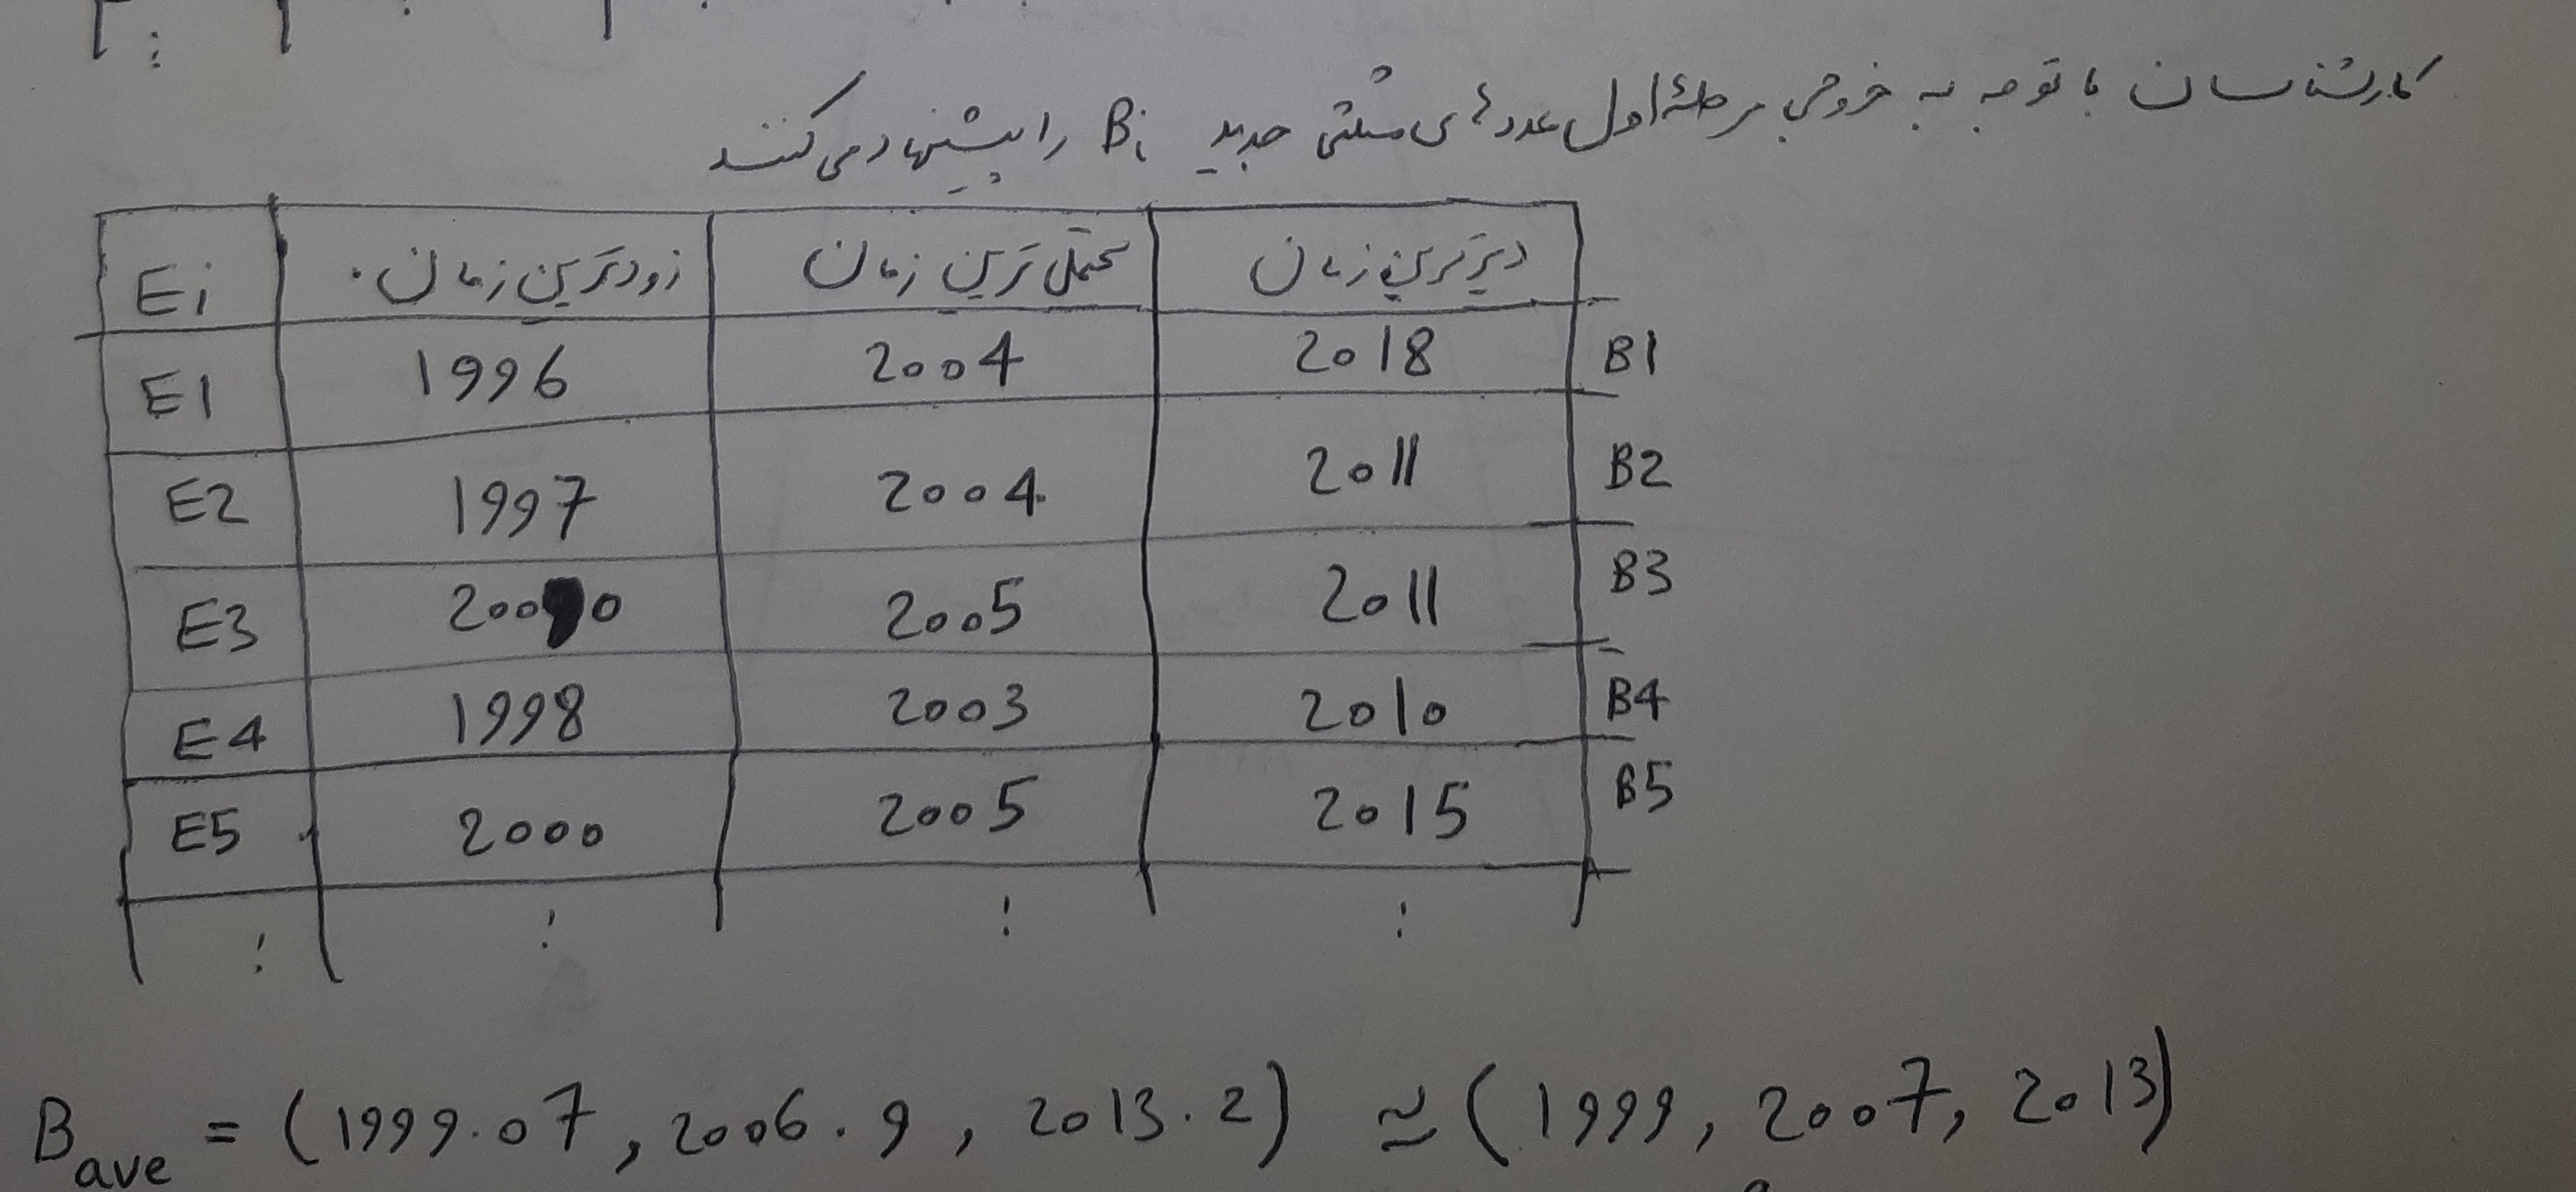 کارشناسان با توجه به خروجی مرحلهٔ اول عددهای مثلثی جدید Bi را پیشنهاد می‌کنند
Ei زودترین زمان محتمل‌ترین زمان دیرترین زمان
E1 1996 2004 2018 B1
E2 1997 2004 2011 B2
E3 2000 2005 2011 B3
E4 1998 2003 2010 B4
E5 2000 2005 2015 B5
⋮ ⋮ ⋮ ⋮
Bave = (1999.07, 2006.9, 2013.2) ≃ (1999, 2007, 2013)